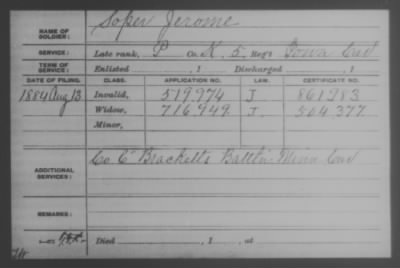 NAME OF SOLDIER: Soper Jerome
SERVICE: Late rank, P Co. K, 5 Reg't Iowa Cav
TERM OF SERVICE: Enlisted , 1 Discharged , 1
DATE OF FILING. CLASS. APPLICATION NO. LAW. CERTIFICATE NO.
1884 Aug 13 Invalid, 519.974 J 861983
Widow, 716.949 J. 504.377
Minor,
ADDITIONAL SERVICES: Co C Bracketts Battn Minn Cav
REMARKS:
Died , 1 , at